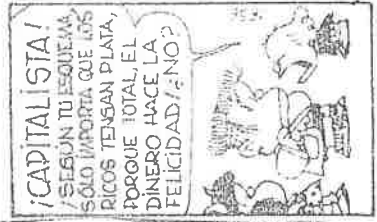 ¡CAPITALISTA!
¡SEGUN TU ESQUEMA,
SÓLO IMPORTA QUE LOS
RICOS TENGAN PLATA,
PORQUE TOTAL, EL
DINERO HACE LA
FELICIDAD! ¿NO?